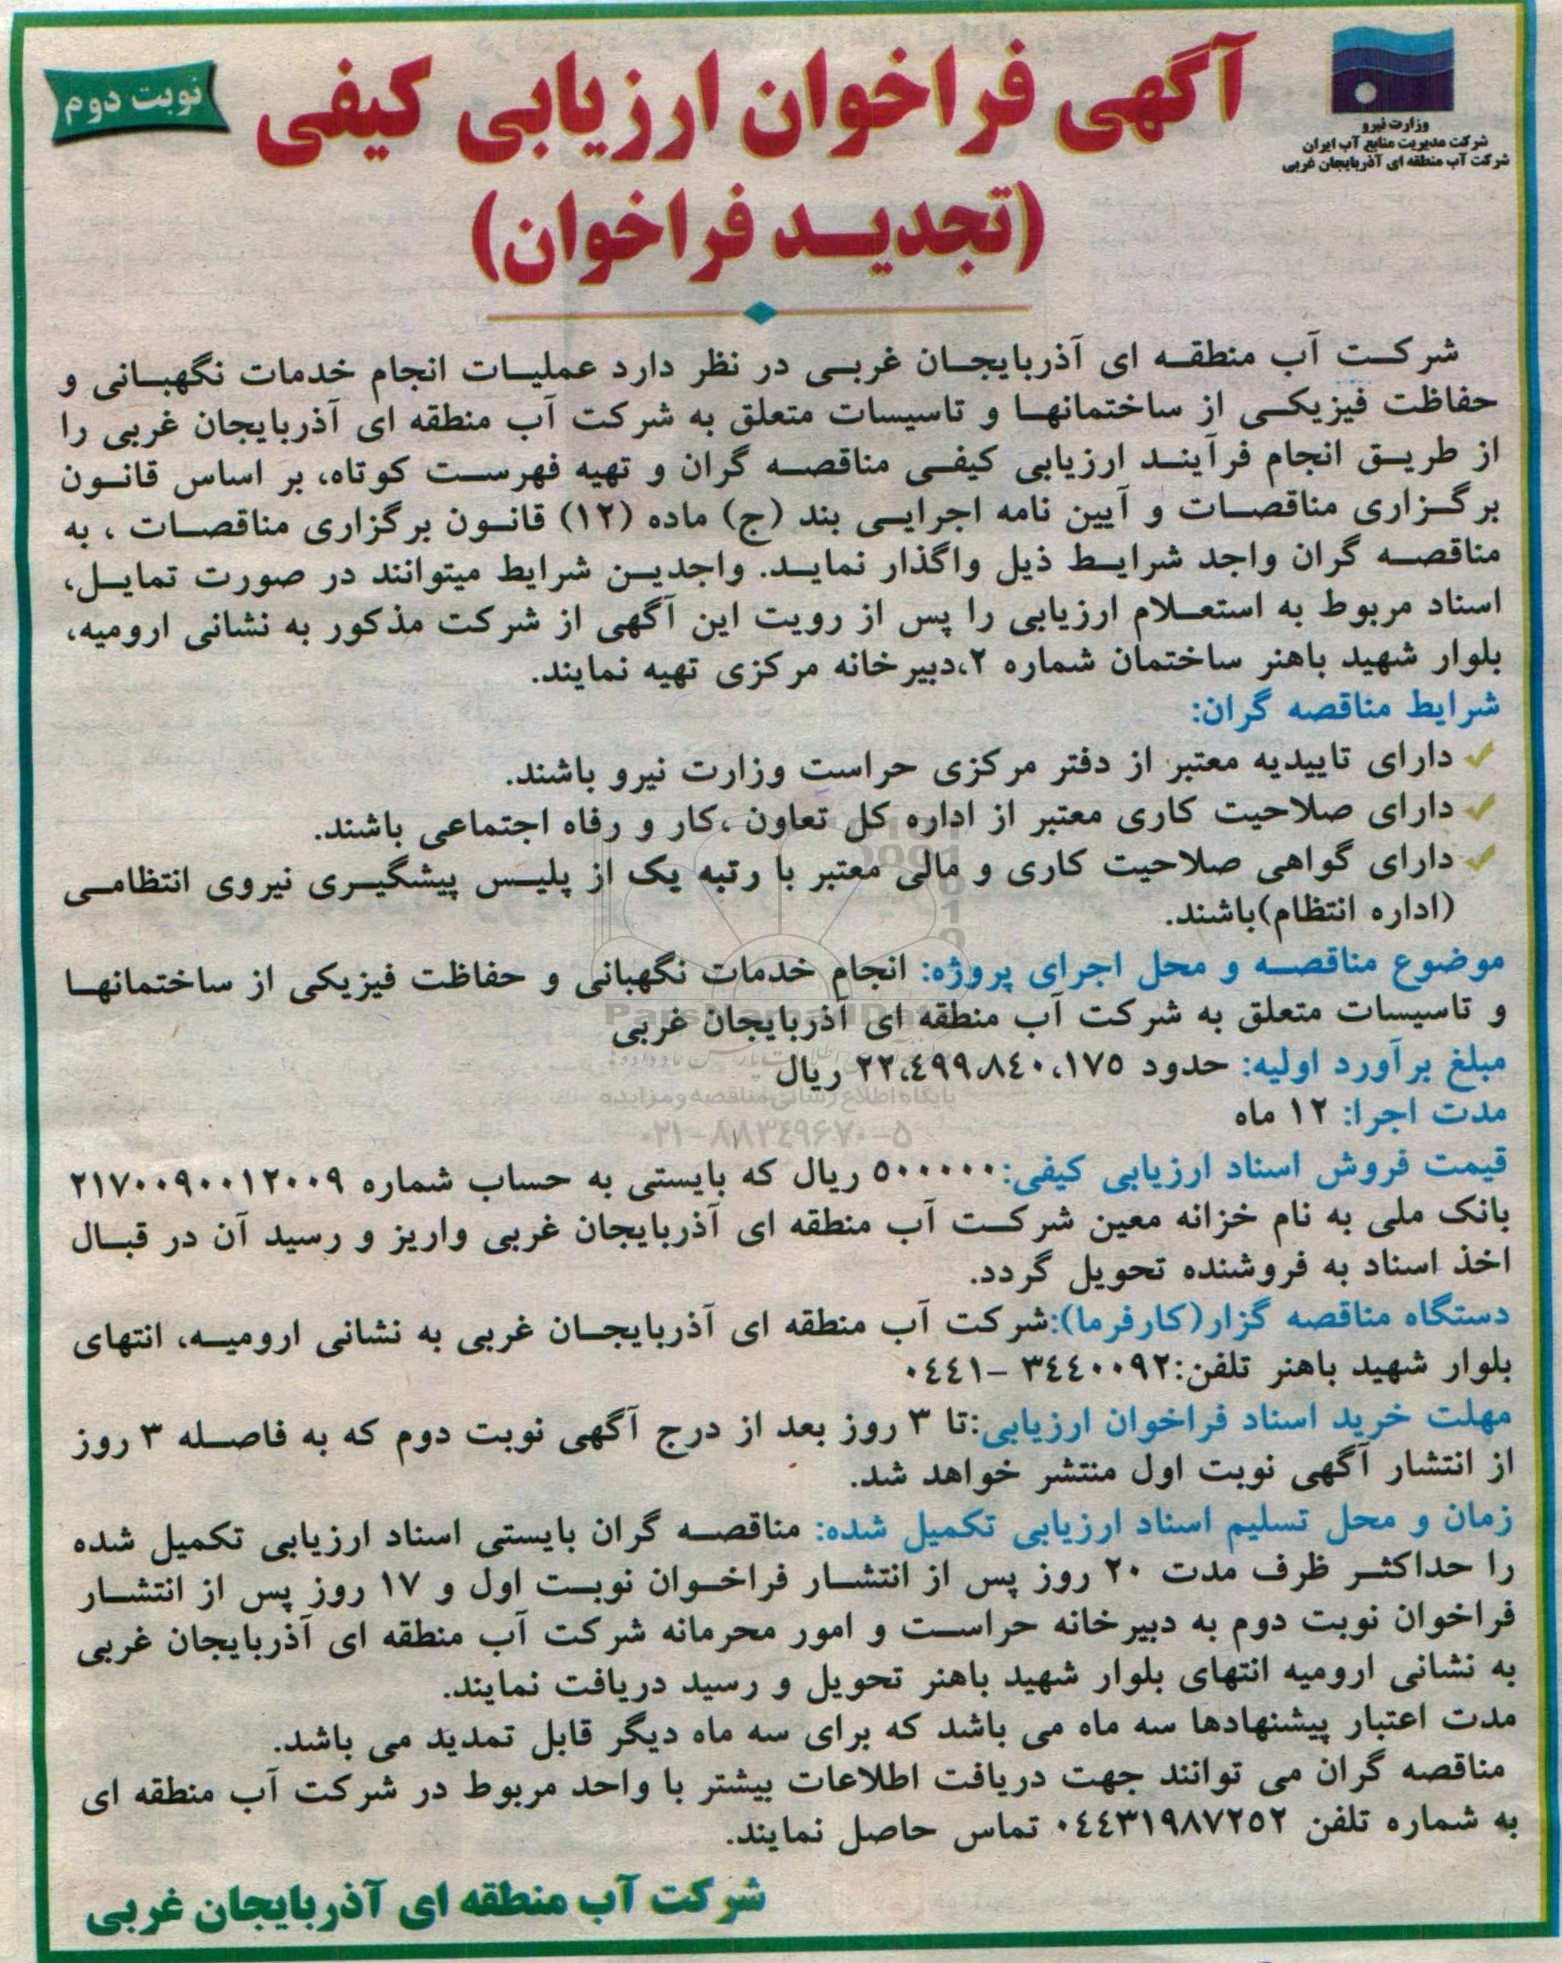 وزارت نیرو
شرکت مدیریت منابع آب ایران
شرکت آب منطقه ای آذربایجان غربی
آگهی فراخوان ارزیابی کیفی
نوبت دوم
(تجدید فراخوان)
شرکت آب منطقه ای آذربایجان غربی در نظر دارد عملیات انجام خدمات نگهبانی و
حفاظت فیزیکی از ساختمانها و تاسیسات متعلق به شرکت آب منطقه ای آذربایجان غربی را
از طریق انجام فرآیند ارزیابی کیفی مناقصه گران و تهیه فهرست کوتاه، بر اساس قانون
برگزاری مناقصات و آیین نامه اجرایی بند (ج) ماده (۱۲) قانون برگزاری مناقصات ، به
مناقصه گران واجد شرایط ذیل واگذار نماید. واجدین شرایط میتوانند در صورت تمایل،
اسناد مربوط به استعلام ارزیابی را پس از رویت این آگهی از شرکت مذکور به نشانی ارومیه،
بلوار شهید باهنر ساختمان شماره ۲،دبیرخانه مرکزی تهیه نمایند.
شرایط مناقصه گران:
✓ دارای تاییدیه معتبر از دفتر مرکزی حراست وزارت نیرو باشند.
✓ دارای صلاحیت کاری معتبر از اداره کل تعاون ،کار و رفاه اجتماعی باشند.
✓ دارای گواهی صلاحیت کاری و مالی معتبر با رتبه یک از پلیس پیشگیری نیروی انتظامی
(اداره انتظام)باشند.
موضوع مناقصه و محل اجرای پروژه: انجام خدمات نگهبانی و حفاظت فیزیکی از ساختمانها
و تاسیسات متعلق به شرکت آب منطقه ای آذربایجان غربی
ParsNamadData
مبلغ برآورد اولیه: حدود ۲۲،٤۹۹،۸٤۰،۱۷۵ ریال
پایگاه اطلاع رسانی مناقصه و مزایده
مدت اجرا: ۱۲ ماه
۰۲۱-۸۸۳۴۹۶۷۰-۵
قیمت فروش اسناد ارزیابی کیفی:۵۰۰۰۰۰ ریال که بایستی به حساب شماره ۲۱۷۰۰۹۰۰۱۲۰۰۹
بانک ملی به نام خزانه معین شرکت آب منطقه ای آذربایجان غربی واریز و رسید آن در قبال
اخذ اسناد به فروشنده تحویل گردد.
دستگاه مناقصه گزار(کارفرما):شرکت آب منطقه ای آذربایجان غربی به نشانی ارومیه، انتهای
بلوار شهید باهنر تلفن:۳٤٤۰۰۹۲ -۰٤٤۱
مهلت خرید اسناد فراخوان ارزیابی:تا ۳ روز بعد از درج آگهی نوبت دوم که به فاصله ۳ روز
از انتشار آگهی نوبت اول منتشر خواهد شد.
زمان و محل تسلیم اسناد ارزیابی تکمیل شده: مناقصه گران بایستی اسناد ارزیابی تکمیل شده
را حداکثر ظرف مدت ۲۰ روز پس از انتشار فراخوان نوبت اول و ۱۷ روز پس از انتشار
فراخوان نوبت دوم به دبیرخانه حراست و امور محرمانه شرکت آب منطقه ای آذربایجان غربی
به نشانی ارومیه انتهای بلوار شهید باهنر تحویل و رسید دریافت نمایند.
مدت اعتبار پیشنهادها سه ماه می باشد که برای سه ماه دیگر قابل تمدید می باشد.
مناقصه گران می توانند جهت دریافت اطلاعات بیشتر با واحد مربوط در شرکت آب منطقه ای
به شماره تلفن ۰٤٤۳۱۹۸۷۲۵۲ تماس حاصل نمایند.
شرکت آب منطقه ای آذربایجان غربی